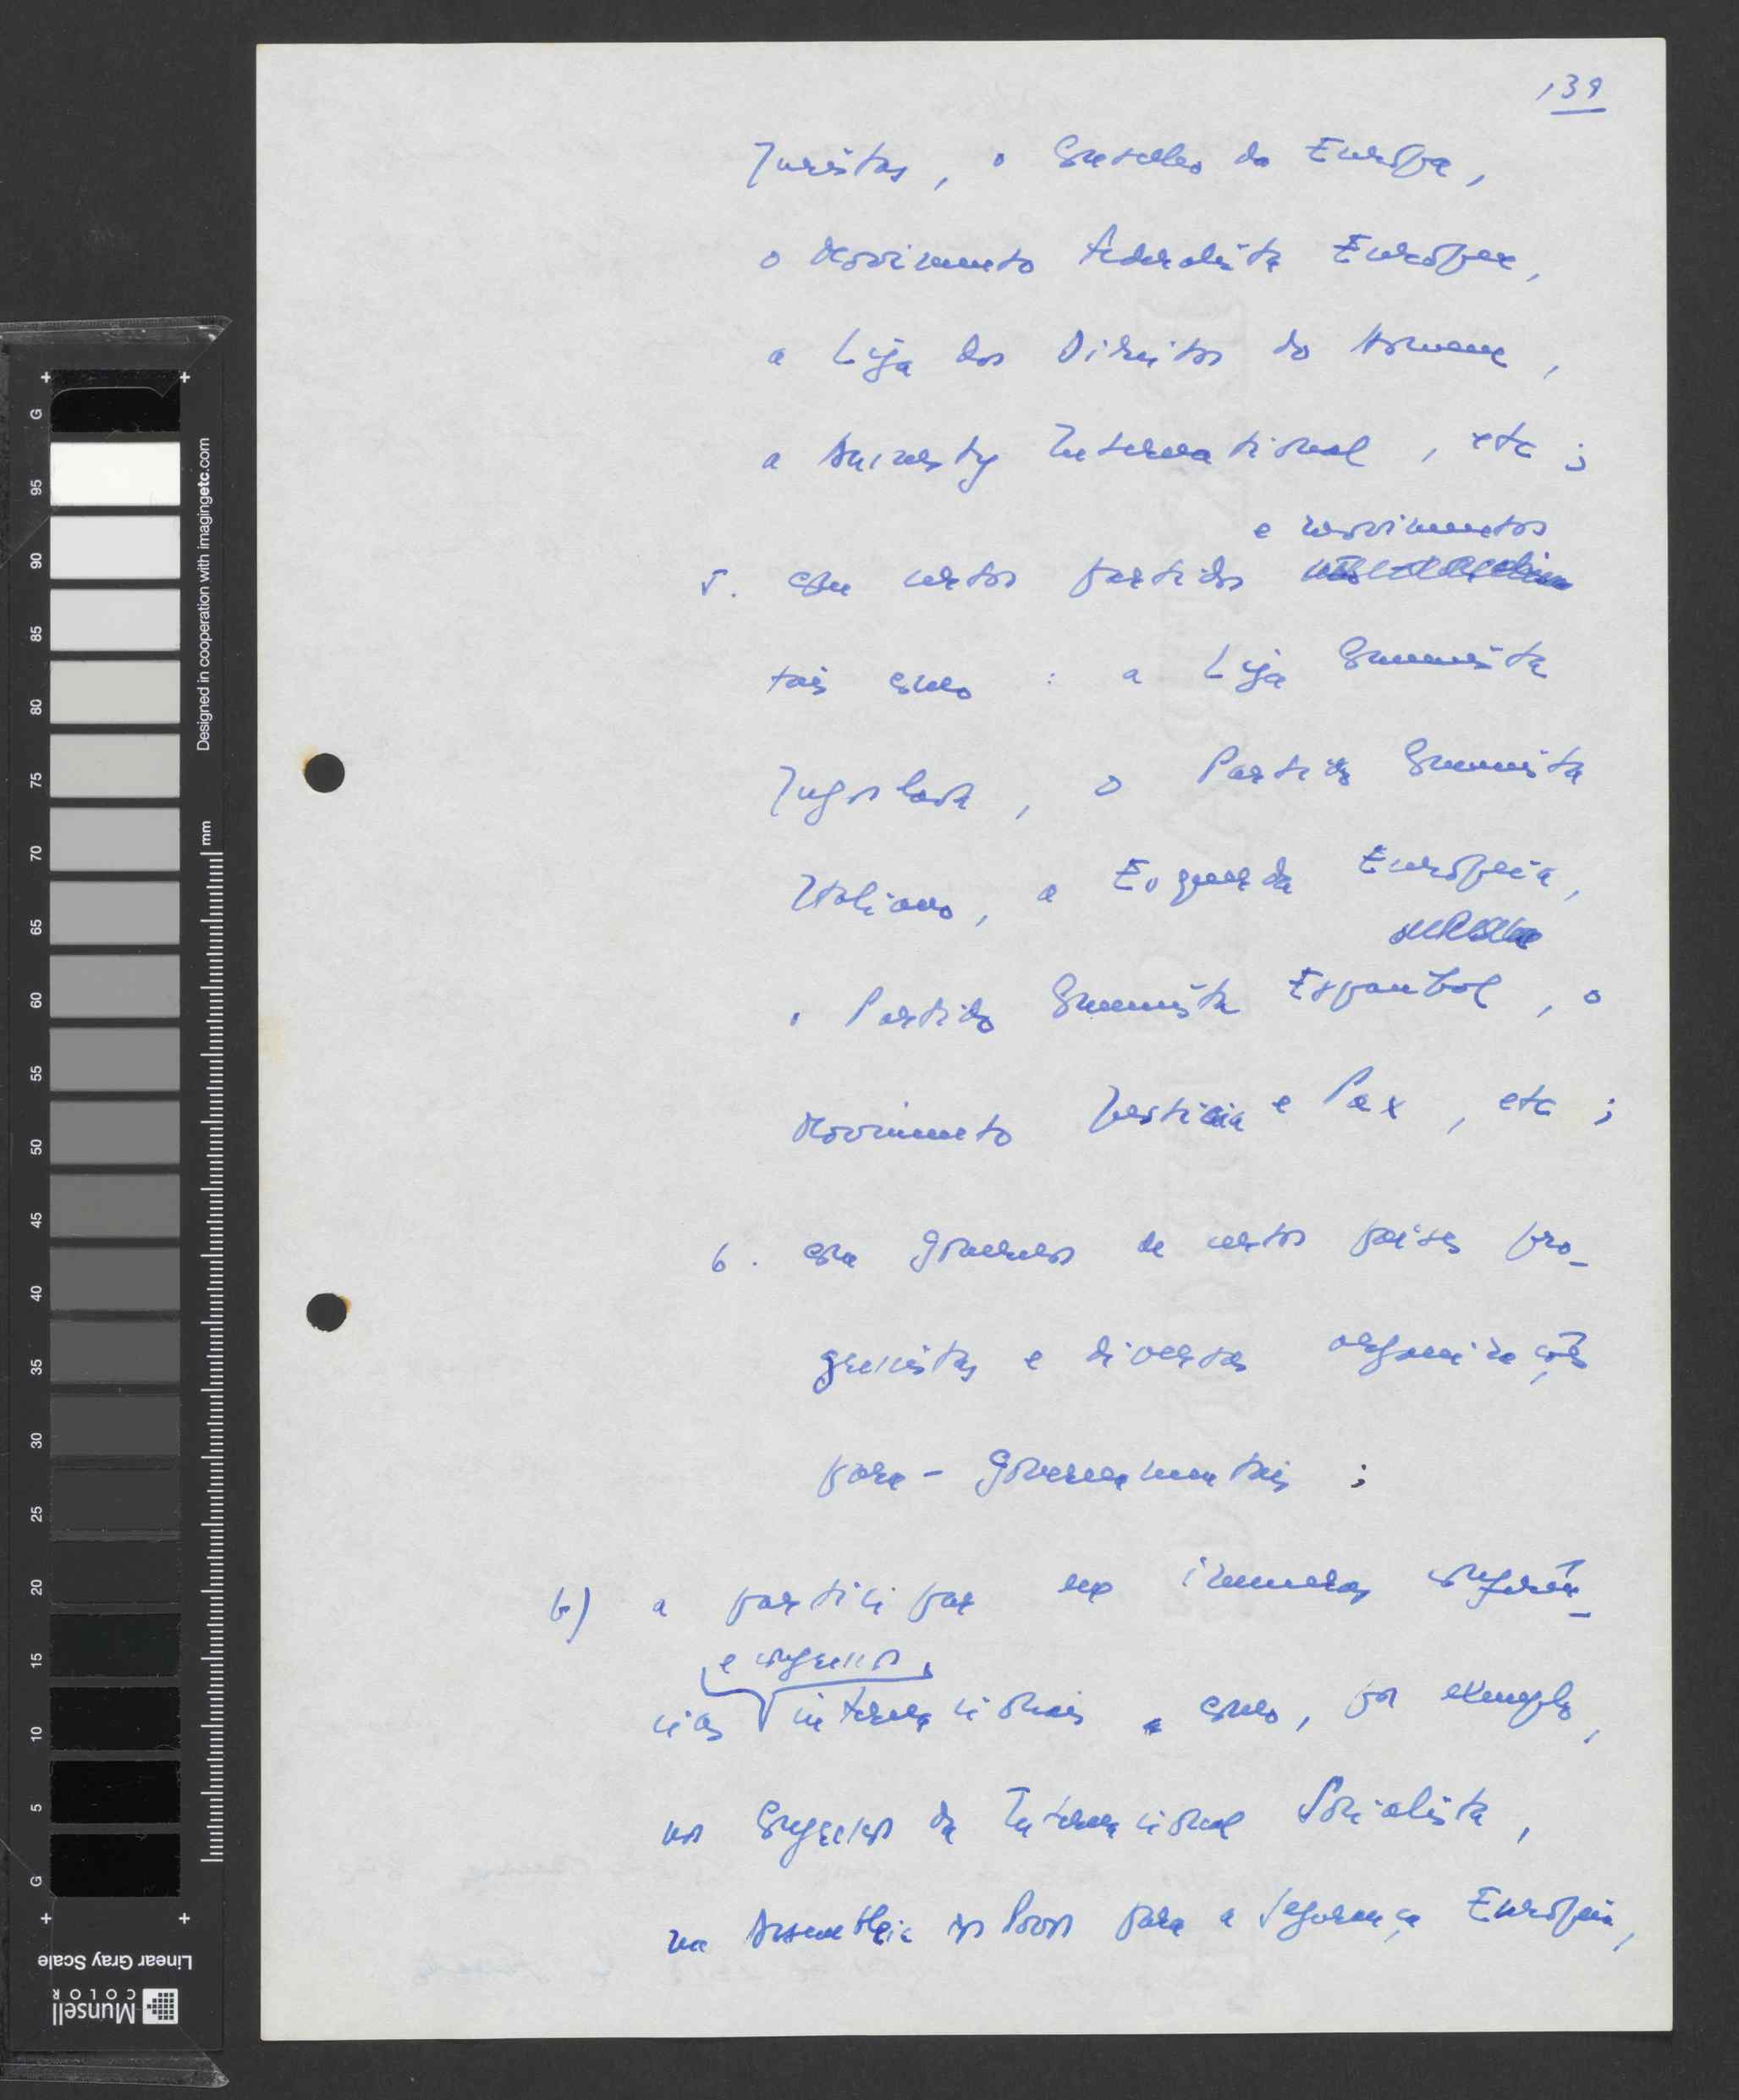 139
Juristas, o Conselho da Europa,
o Movimento Federalista Europeu,
a Liga dos Direitos do Homem,
a Amnesty International, etc;
e movimentos
5. com certos partidos
tais como : a Liga Comunista
Jugoslava, o Partido Comunista
Italiano, a Esquerda Europeia,
o Partido Comunista Espanhol, o
Movimento Justiça e Pax, etc;
6. com governos de certos países pro-
gressistas e diversas organizações
para-governamentais;
b) a participar em inumeras conferên-
e congressos
cias internacionais como, por exemplo,
nos Congressos da Internacional Socialista,
na Assembleia dos Povos para a Segurança Europeia,
G
95
90
85
80
75
70
65
60
55
50
45
40
35
30
25
20
15
10
5
G
Designed in cooperation with imagingetc.com
mm
Linear Gray Scale
Munsell
COLOR